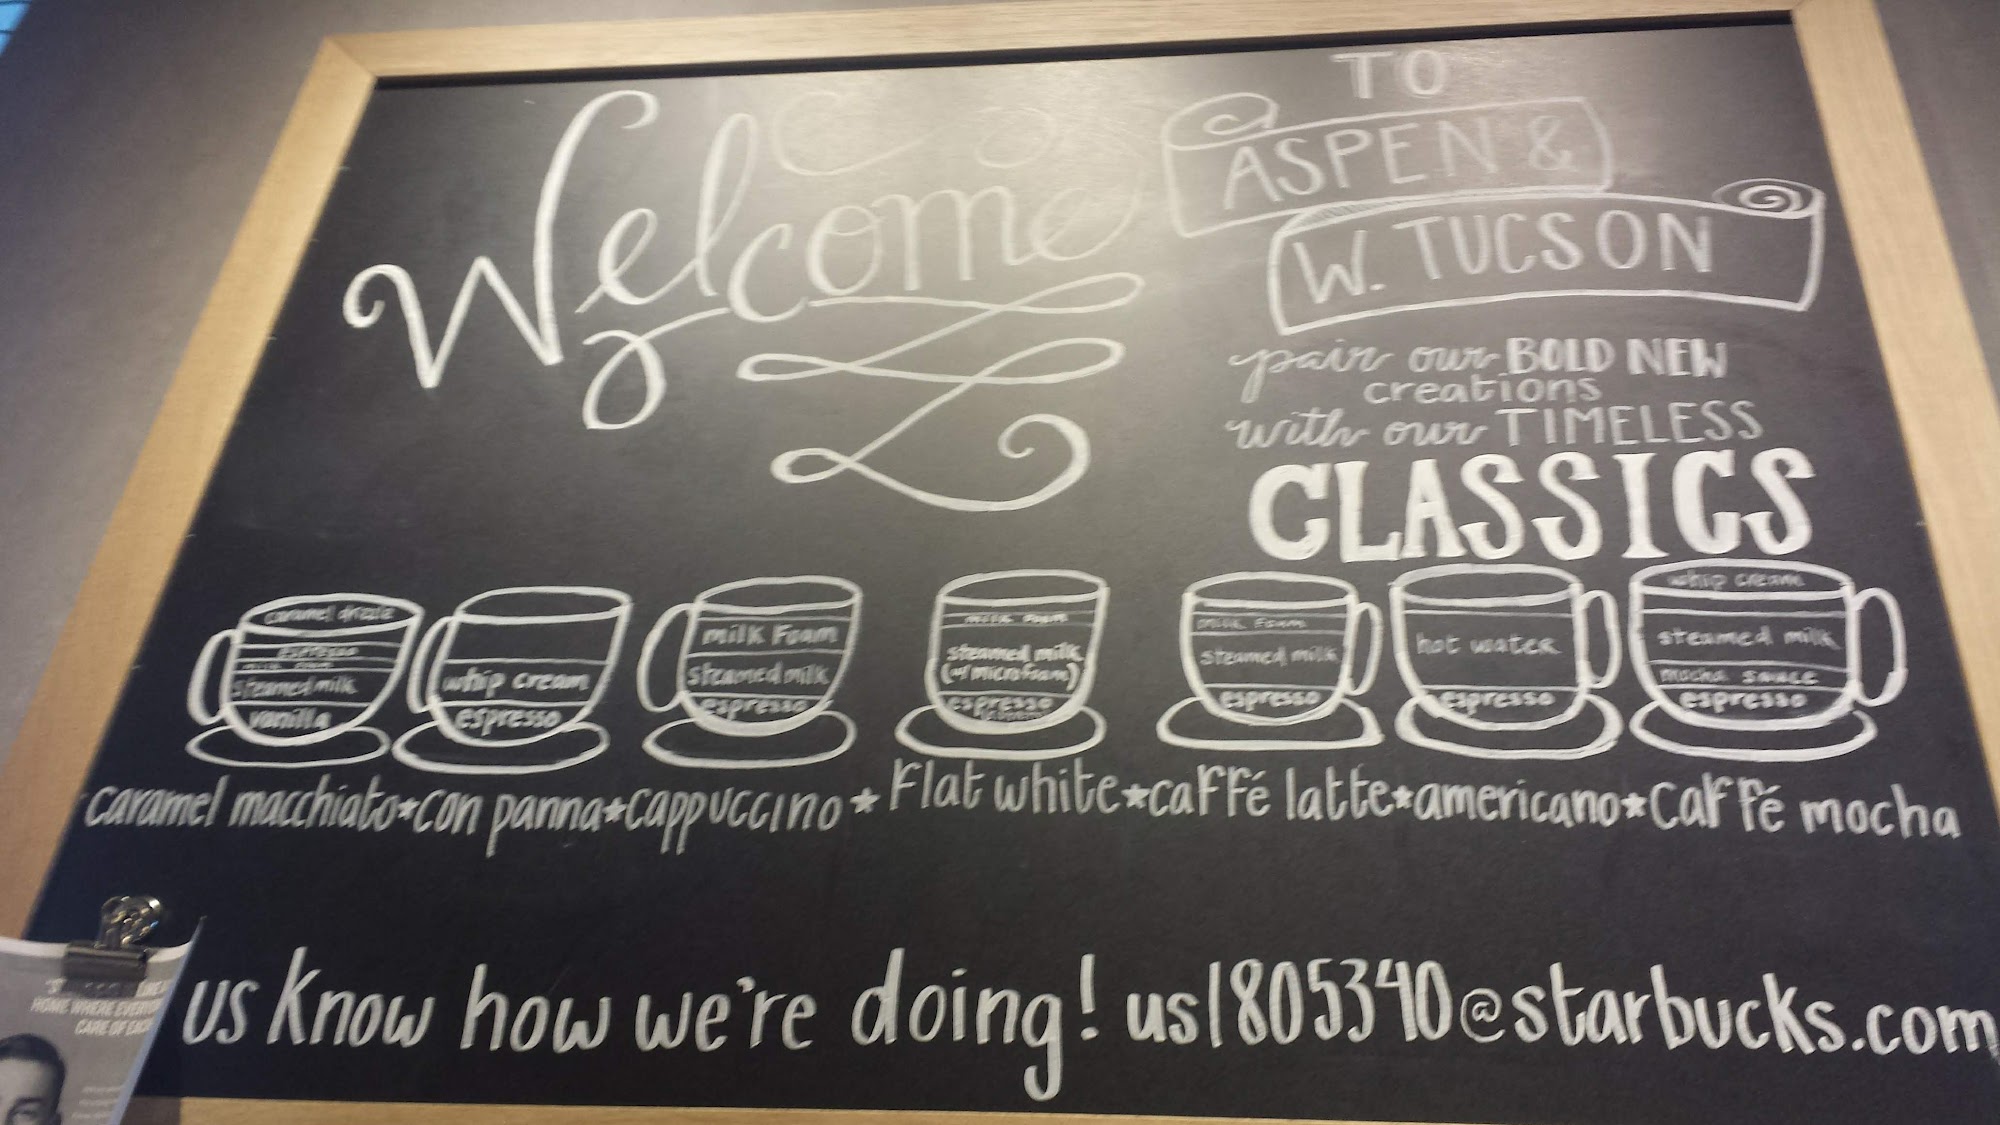 Welcome
TO
ASPEN &
W. TUCSON
pair our BOLD NEW
creations
with our TIMELESS
CLASSICS
caramel drizzle
espresso
milk foam
steamed milk
vanilla
whip cream
espresso
milk Foam
steamed milk
espresso
milk foam
steamed milk
(w/ microfoam)
espresso
milk Foam
steamed milk
espresso
hot water
espresso
whip cream
steamed milk
mocha sauce
espresso
caramel macchiato*con panna*cappuccino * Flat white*caffé latte*americano*caffé mocha
us know how we're doing! us1805340@starbucks.com
HOME WHERE
CARE OF